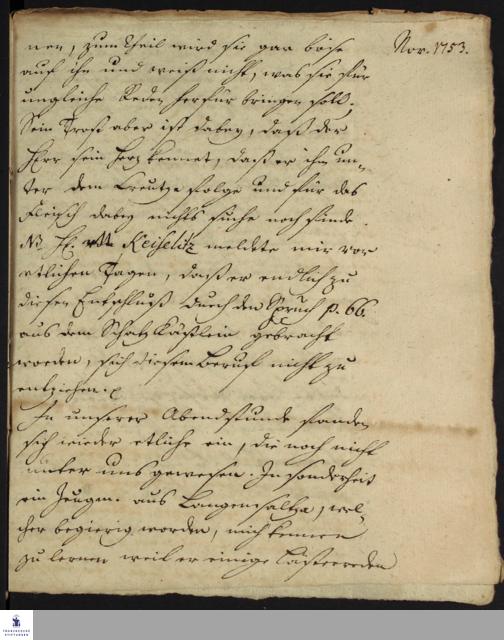 nen, zum Theil wird sie gar böse
Nov. 1753.
auf ihn und weiß nicht, was sie für
ungleiche Reden herfür bringen soll.
Sein Trost aber ist dabey, daß der
Herr sein Herz kennet, daß er ihm un-
ter dem Creutze folge und für das
Fleisch dabey nichts suche noch finde.
NB H. Keiselitz meldete mir vor
etlichen Tagen, daß er endlich zu
diesen Entschluß durch den Spruch p. 66.
aus dem Schatz Kästlein gebracht
worden, sich diesem Beruf nicht zu
entziehen.
In unserer Abendstunde fanden
sich wieder etliche ein, die noch nicht
unter uns gewesen. Insonderheit
ein Zeugm. aus Langensaltza, wel-
cher begierig worden, mich kennen
zu lernen weil er einige Lästerreden
FRANCKESCHE
STIFTUNGEN